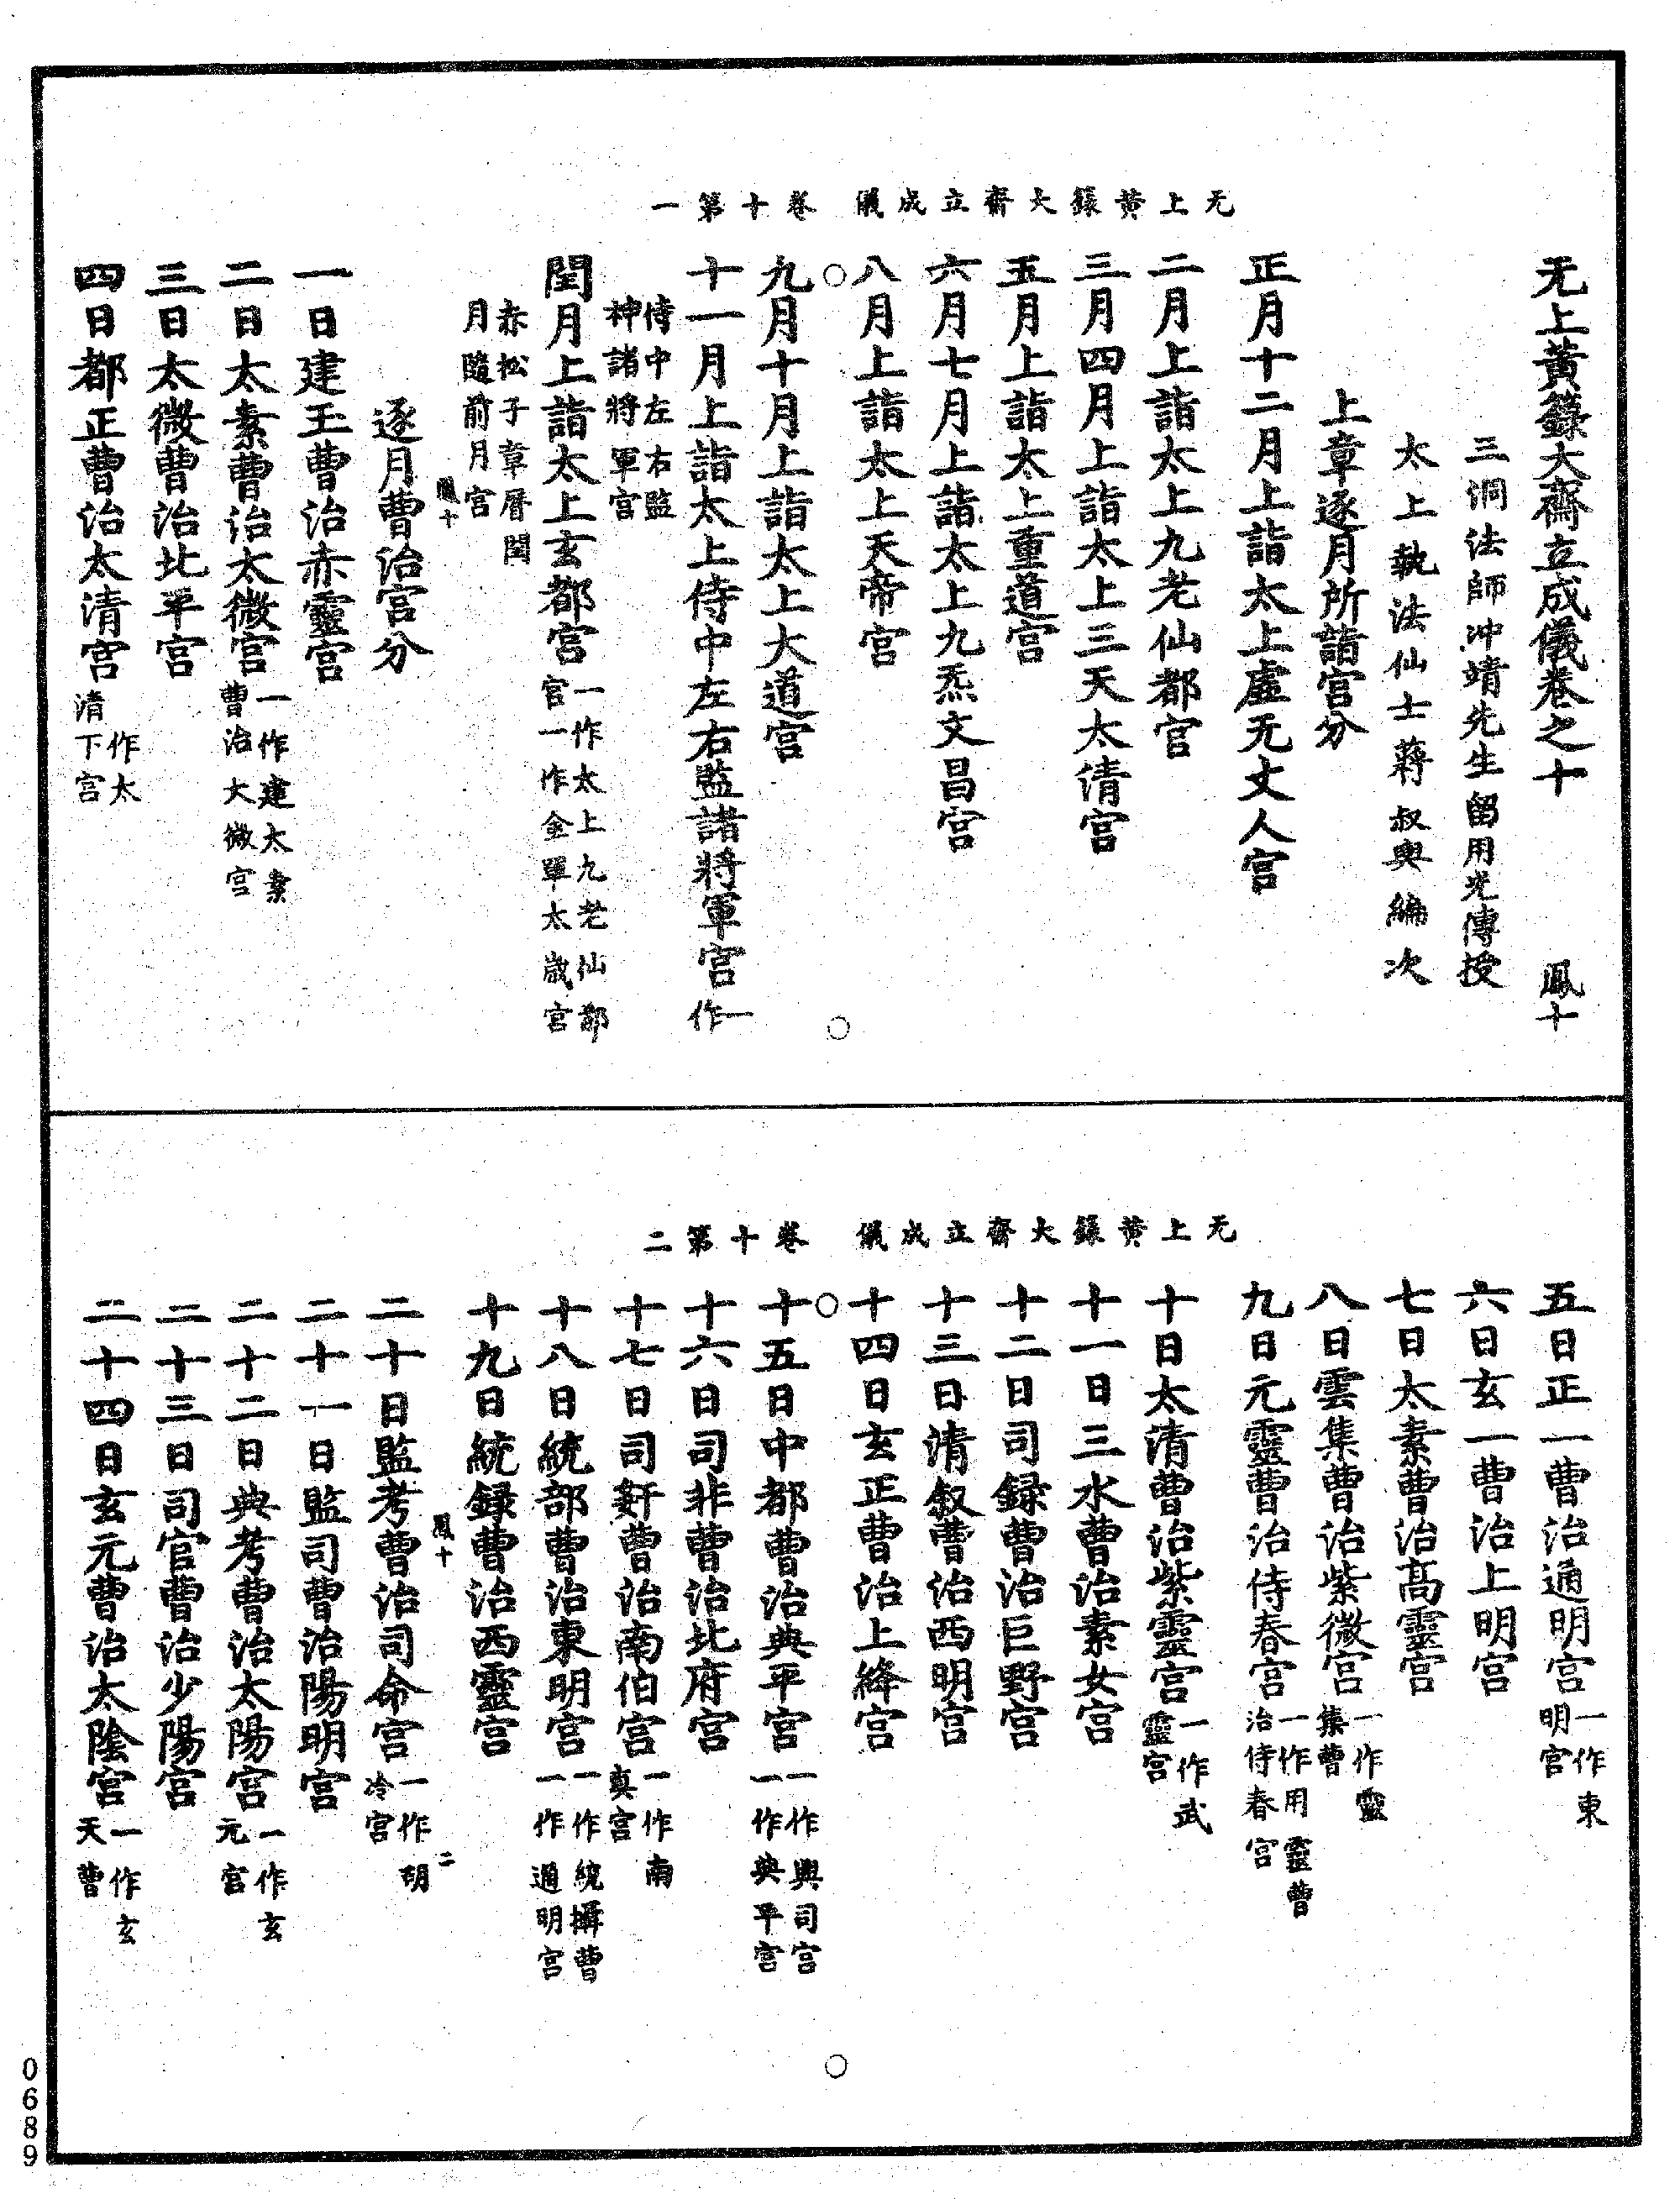 无上黃籙大齋立成儀 卷十第一
无上黃籙大齋立成儀卷之十 鳳十
三洞法師冲靖先生留用光傳授
太上執法仙士蔣叔輿編次
上章逐月所詣宮分
正月十二月上詣太上虛无丈人宮
二月上詣太上九老仙都宮
三月四月上詣太上三天太清宮
五月上詣太上重道宮
六月七月上詣太上九炁文昌宮
八月上詣太上天帝宮
九月十月上詣太上大道宮
十一月上詣太上侍中左右監諸將軍宮一作
侍中左右監
神諸將軍宮
閏月上詣太上玄都宮一作太上九老仙都
宮一作金單太歲宮
赤松子章曆閏
月隨前月宮
鳳十
逐月曹治宮分
一日建王曹治赤靈宮
二日太素曹治太微宮一作建太素
曹治大微宮
三日太微曹治北平宮
四日都正曹治太清宮作太
清下宮
无上黃籙大齋立成儀 卷十第二
五日正一曹治通明宮一作東
明宮
六日玄一曹治上明宮
七日太素曹治高靈宮
八日雲集曹治紫微宮一作靈
集曹
九日元靈曹治侍春宮一作用靈曹
治侍春宮
十日太清曹治紫靈宮一作武
靈宮
十一日三水曹治素女宮
十二日司録曹治巨野宮
十三日清叙曹治西明宮
十四日玄正曹治上絳宮
十五日中都曹治典平宮一作興司宮
一作典平宮
十六日司非曹治北府宮
十七日司姧曹治南伯宮一作南
真宮
十八日統部曹治東明宮一作統攝曹
一作通明宮
十九日統録曹治西靈宮
鳳十 二
二十日監考曹治司命宮一作胡
冷宮
二十一日監司曹治陽明宮
二十二日典考曹治太陽宮一作玄
元宮
二十三日司官曹治少陽宮
二十四日玄元曹治太陰宮一作玄
天曹
0689